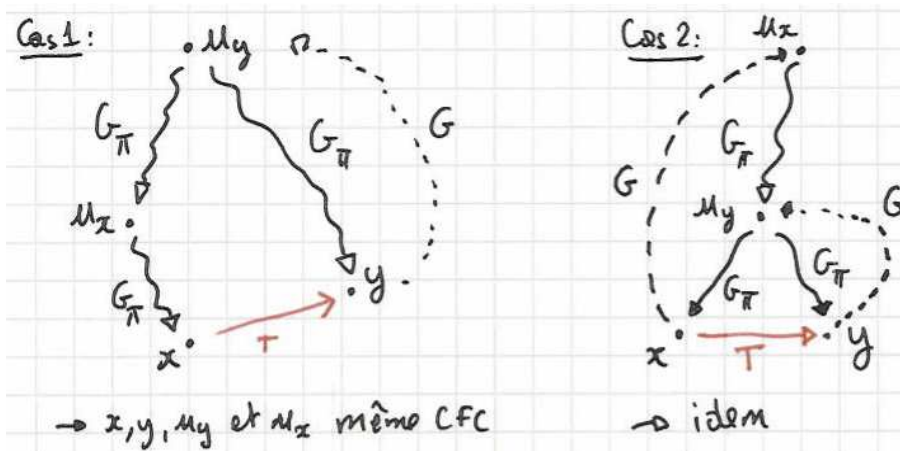 Cas 1:
μy
Gπ
Gπ
G
μx
Gπ
y
x
T
→ x, y, μy et μx même CFC
Cas 2:
μx
Gπ
G
μy
G
Gπ
Gπ
x
T
y
→ idem